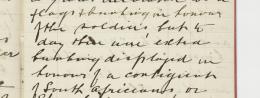 flags & bunting in honour
of the soldiers but to
day there are extra
bunting displayed in
honour of a contingent
of South Africans, or